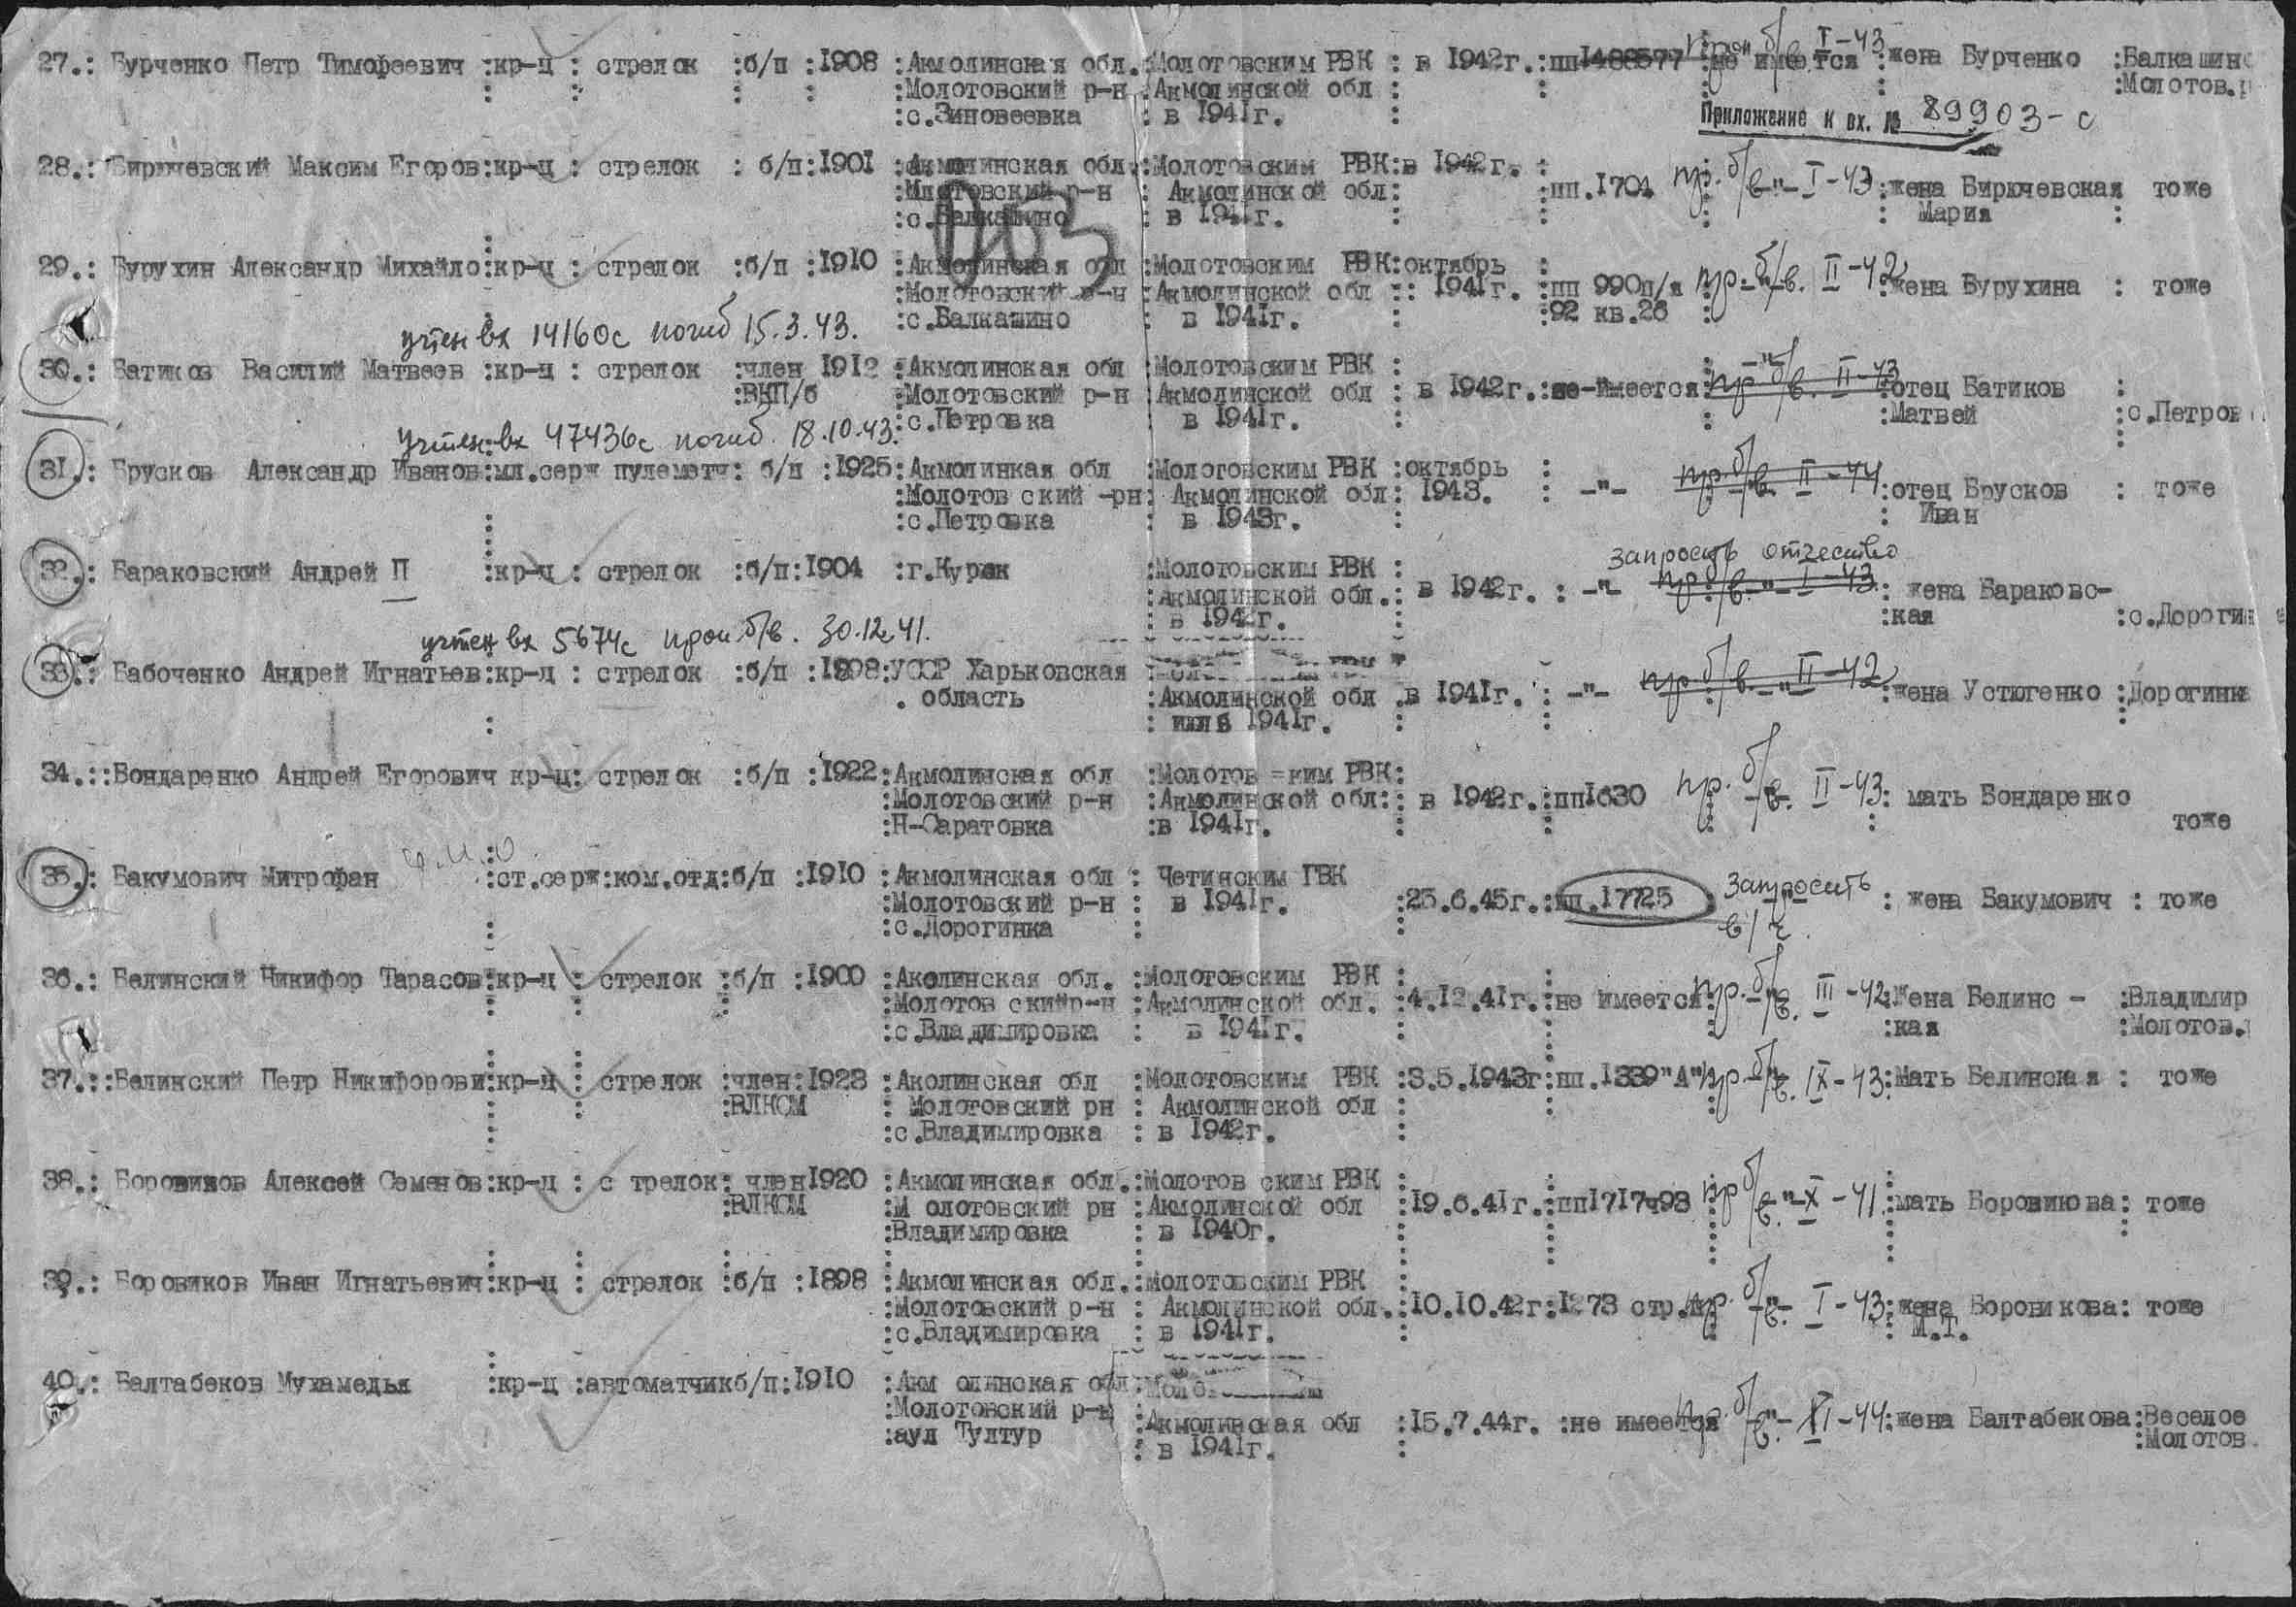 27.: Бурченко Петр Тимофеевич :кр-ц : стрелок :б/п :1908 :Акмолинская обл.:Молотовским РВК : в 1942г.:пп1488577 не имеется :жена Бурченко :Балкашино
проп б/в I-43
:Молотовский р-н :Акмолинской обл : :Молотов.р
:с.Зиновеевка : в 1941г. :
Приложение к вх. № 89903-с
28.: Бирючевский Максим Егоров:кр-ц : стрелок : б/п:1901 :Акмолинская обл.:Молотовским РВК:в 1942г. :
:Млотовский р-н : Акмолинской обл: :пп.1704 пр. б/в -"- I-43 :жена Бирючевская тоже
:с.Балкашино : в 1941г. : : Мария :
29.: Бурухин Александр Михайло:кр-ц : стрелок :б/п :1910 :Акмолинская обл :Молотовским РВК:октябрь :
:Молотовский р-н :Акмолинской обл : 1941г. :пп 990п/я пр. б/в. II-42 :жена Бурухина : тоже
:с.Балкашино : в 1941г. : :92 кв.26 :
учтен вх 14160с погиб 15.3.43.
30.: Батиков Василий Матвеев :кр-ц : стрелок :член 1912 :Акмолинская обл :Молотовским РВК :
:ВКП/б :Молотовский р-н :Акмолинской обл : в 1942г.:не-имеется: пр б/в. II-43 :отец Батиков :
:с.Петровка : в 1941г. : :Матвей :с.Петров
учтен вх 47436с погиб. 18.10.43.
31.: Брусков Александр Иванов:мл.серж пулеметч: б/п :1925:Акмолинкая обл :Мологовским РВК :октябрь :
:Молотов ский -рн: Акмолинской обл: 1943. : -"- пр. б/в II-44 :отец Брусков : тоже
:с.Петровка : в 1943г. : : Иван
запросить отчество
32.: Бараковский Андрей П :кр-ц : стрелок :б/п:1904 :г.Курск :Молотовским РВК :
:Акмолинской обл.: в 1942г. : -"- пр. б/в. -"- I-43 : жена Бараковс-
: в 1942г. : :кая :с.Дорогин
учтен вх 5674с проп. б/в. 30.12.41.
33.: Бабоченко Андрей Игнатьев:кр-ц : стрелок :б/п :1908:УССР Харьковская
. область :Акмолинской обл .в 1941г. : -"- пр. б/в. -"- II-42 :жена Устюгенко :Дорогинк
: 1941г. :
34.::Бондаренко Андрей Егорович кр-ц: стрелок :б/п :1922:Акмолинская обл :Молотов =ким РВК:
:Молотовский р-н :Акмолинской обл: в 1942г.:пп1630 пр. б/в. II-43: мать Бондаренко
:Н-Саратовка :в 1941г. : : тоже
ф.И.О.
35.: Бакумович Митрофан :ст.серж:ком.отд:б/п :1910 :Акмолинская обл : Четинским ГВК
:Молотовский р-н : в 1941г. :23.6.45г.:пп.17725 : Запросить в/ч. : жена Бакумович : тоже
:с.Дорогинка :
36.: Белинский Никифор Тарасов:кр-ц : стрелок :б/п :1900 :Аколинская обл. :Молотовским РВК :
:Молотов скийр-н :Акмолинской обл. :4.12.41г.:не имеется: пр. б/в. III-42:Жена Белинс - :Владимир
:с.Владимировка : в 1941г. : :кая :Молотов.
37.::Белинский Петр Никифорови:кр-ц : стрелок :член:1923 :Аколинская обл :Молотовским РВК :3.5.1943г:пп.1339"А" пр. б/в. IX-43:Мать Белинская : тоже
:ВЛКСМ : Молотовский рн : Акмолинской обл :
:с.Владимировка : в 1942г. :
38.: Боровиков Алексей Семенов:кр-ц : с трелок: член1920 :Акмолинская обл.:Молотов ским РВК
:ВЛКСМ :М олотовский рн :Акмолинской обл :19.6.41г.:пп1717ч93 пр б/в. -"- X-41 :мать Боровикова: тоже
:Владимировка : в 1940г. :
39.: Боровиков Иван Игнатьевич:кр-ц : стрелок :б/п :1898 :Акмолинская обл.:молотовским РВК :
:Молотовский р-н : Акмолинской обл.:10.10.42г:1273 стр. пр. б/в. -"- I-43:жена Боровикова: тоже
:с.Владимировка : в 1941г. : : М.Т.
40.: Балтабеков Мухамедья :кр-ц :автоматчикб/п:1910 :Акм олинская обл:
:Молотовский р-н :Акмолинская обл :15.7.44г. :не имеется пр. б/в. -"- XI-44:жена Балтабекова:Веселое
:аул Тултур : в 1941г. : :Молотов.